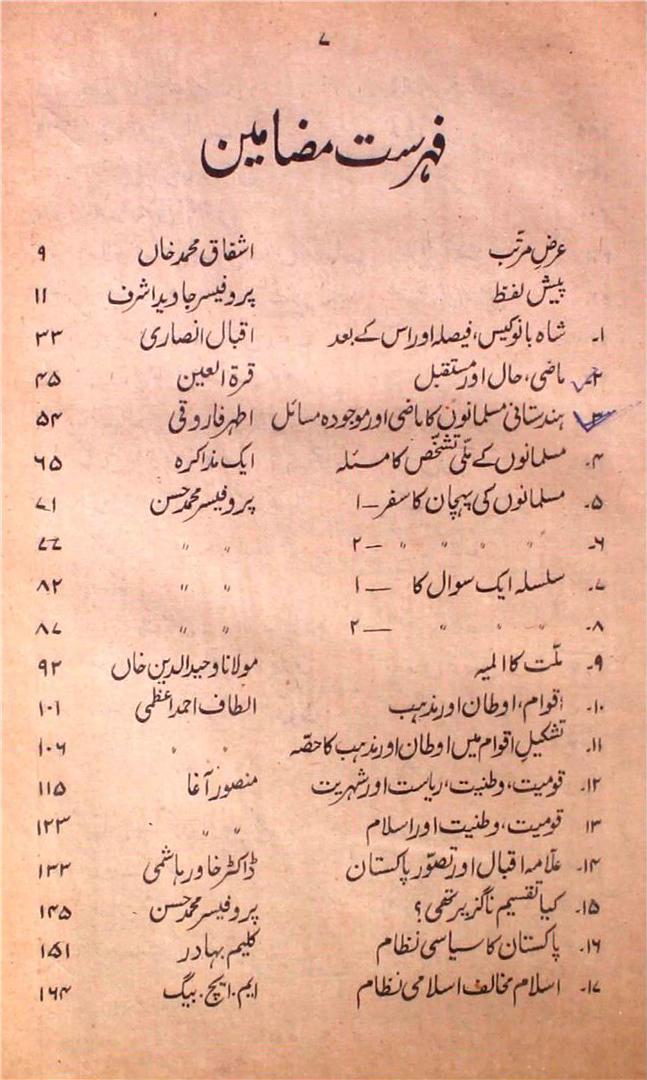 ۷
فہرست مضامین
عرضِ مرتب اشفاق محمد خاں ۹
پیش لفظ پروفیسر جاوید اشرف ۱۱
۱۔ شاہ بانو کیس، فیصلہ اور اس کے بعد اقبال انصاری ۳۳
۲۔ ماضی، حال اور مستقبل قرۃ العین ۴۵
۳۔ ہندستانی مسلمانوں کا ماضی اور موجودہ مسائل اطہر فاروقی ۵۴
۴۔ مسلمانوں کے ملّی تشخّص کا مسئلہ ایک مذاکرہ ۶۵
۵۔ مسلمانوں کی پہچان کا سفر — ۱ پروفیسر محمد حسن ۷۱
۶۔ " " " " — ۲ " " ۷۷
۷۔ سلسلہ ایک سوال کا — ۱ " " ۸۲
۸۔ " " " — ۲ " " ۸۷
۹۔ ملّت کا المیہ مولانا وحید الدین خاں ۹۲
۱۰۔ اقوام، اوطان اور مذہب الطاف احمد اعظمی ۱۰۱
۱۱۔ تشکیلِ اقوام میں اوطان اور مذہب کا حصّہ " " ۱۰۶
۱۲۔ قومیت، وطنیت، ریاست اور شہریت منصور آغا ۱۱۵
۱۳ قومیت، وطنیت اور اسلام " " ۱۲۳
۱۴۔ علّامہ اقبال اور تصوّر پاکستان ڈاکٹر خاور ہاشمی ۱۳۳
۱۵۔ کیا تقسیم ناگزیر تھی؟ پروفیسر محمد حسن ۱۴۵
۱۶۔ پاکستان کا سیاسی نظام کلیم بہادر ۱۵۱
۱۷۔ اسلام مخالف اسلامی نظام ایم۔ ایچ۔ بیگ ۱۶۴